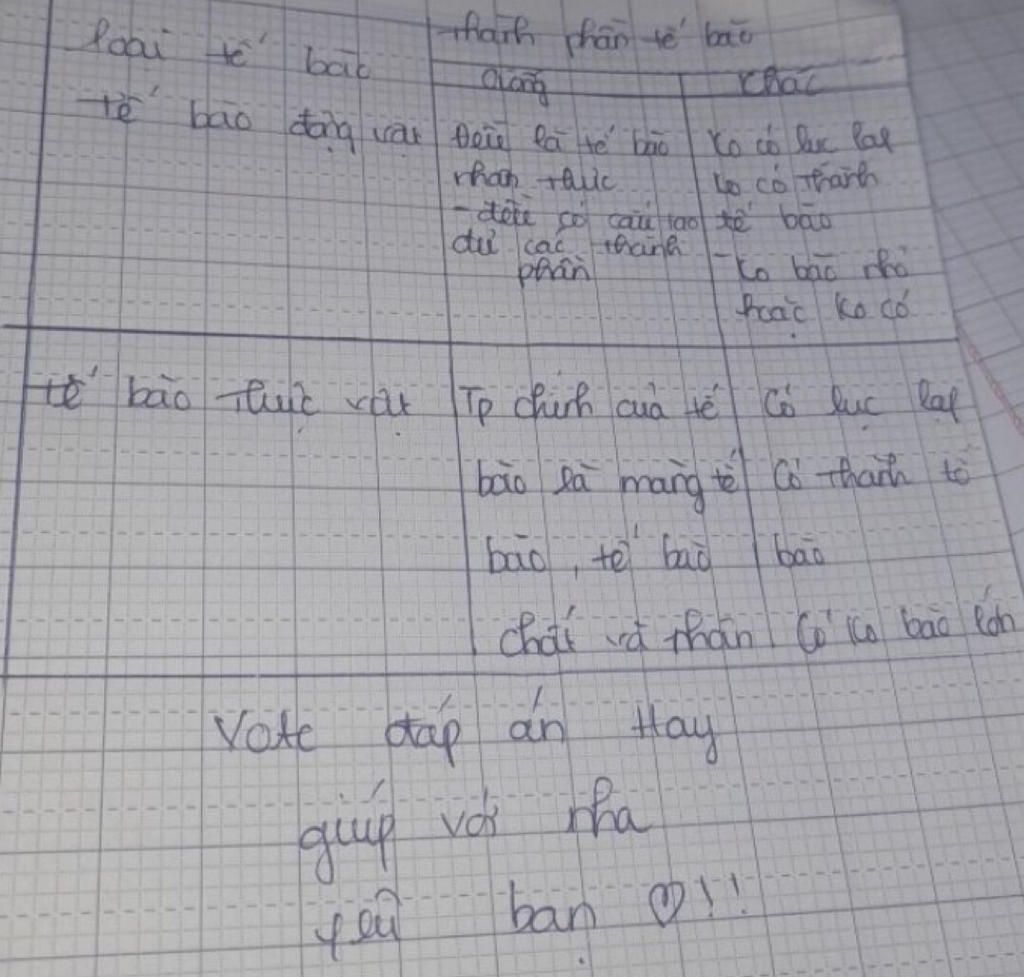 Loại tế bào
Thành phần tế bào
Giống
Khác
Tế bào động vật
Đều là tế bào
nhân thực
- đều có cấu tạo
đủ các thành
phần
Ko có lục lạp
ko có thành
tế bào
- Ko bào nhỏ
hoặc ko có
Tế bào thực vật
Tp chính của tế
bào là màng tế
bào, tế bào
chất và nhân
Có lục lạp
Có thành tế
bào
Có ko bào lớn
Vote đáp án Hay
giúp với nha
yêu bạn ♡!!